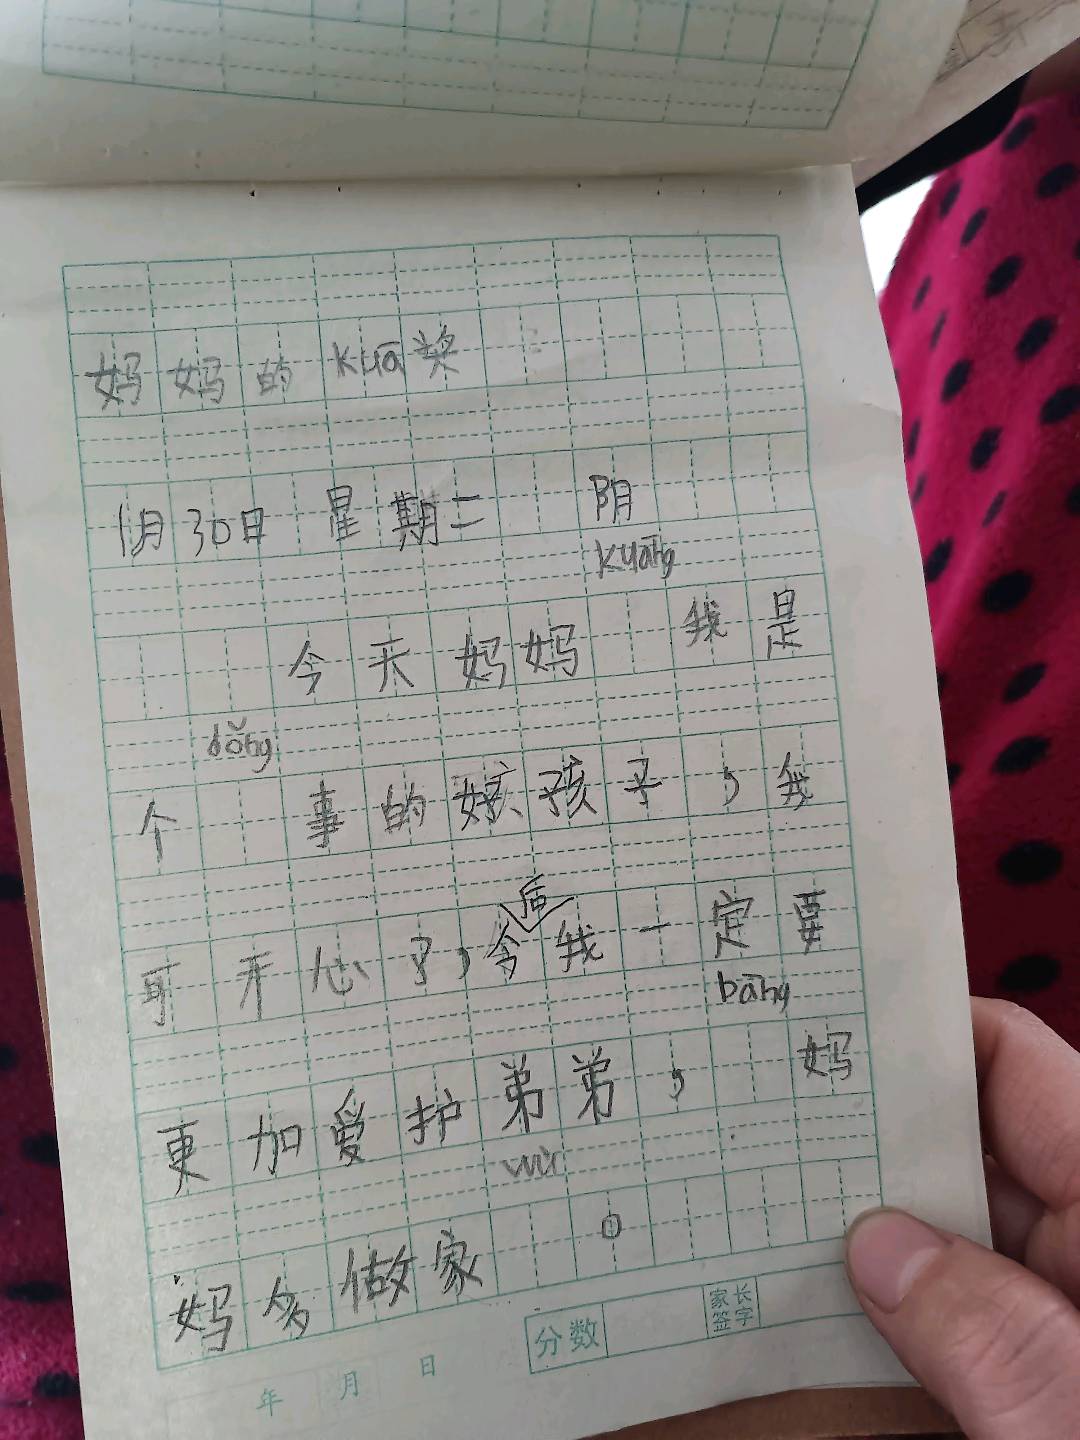 妈妈的kuā奖
1月30日 星期二 阴
kuāng
今天妈妈 我是
dǒng
个 事的好孩子，我
后
可开心了，今我一定要
bāng
更加爱护弟弟， 妈
wù
妈多做家 。
分数 家长签字
年 月 日